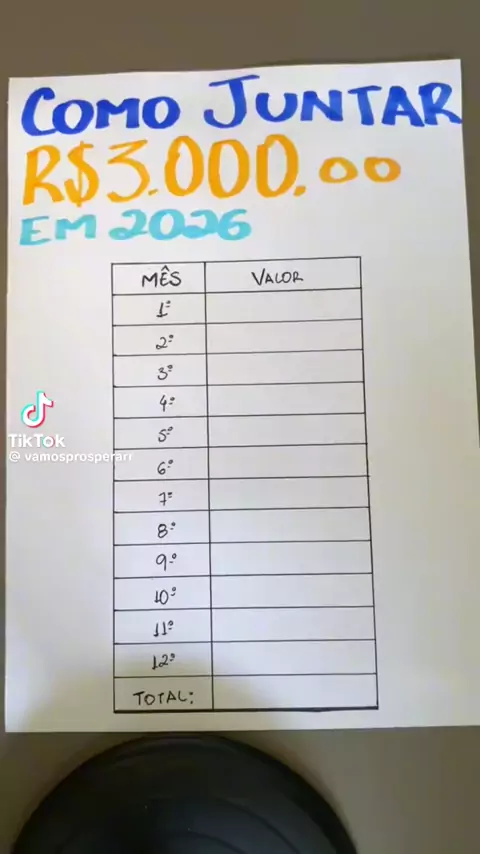 COMO JUNTAR
R$3.000,00
EM 2026
MÊS VALOR
1º
2º
3º
4º
5º
6º
7º
8º
9º
10º
11º
12º
TOTAL:
TikTok
@ vamosprosperarr